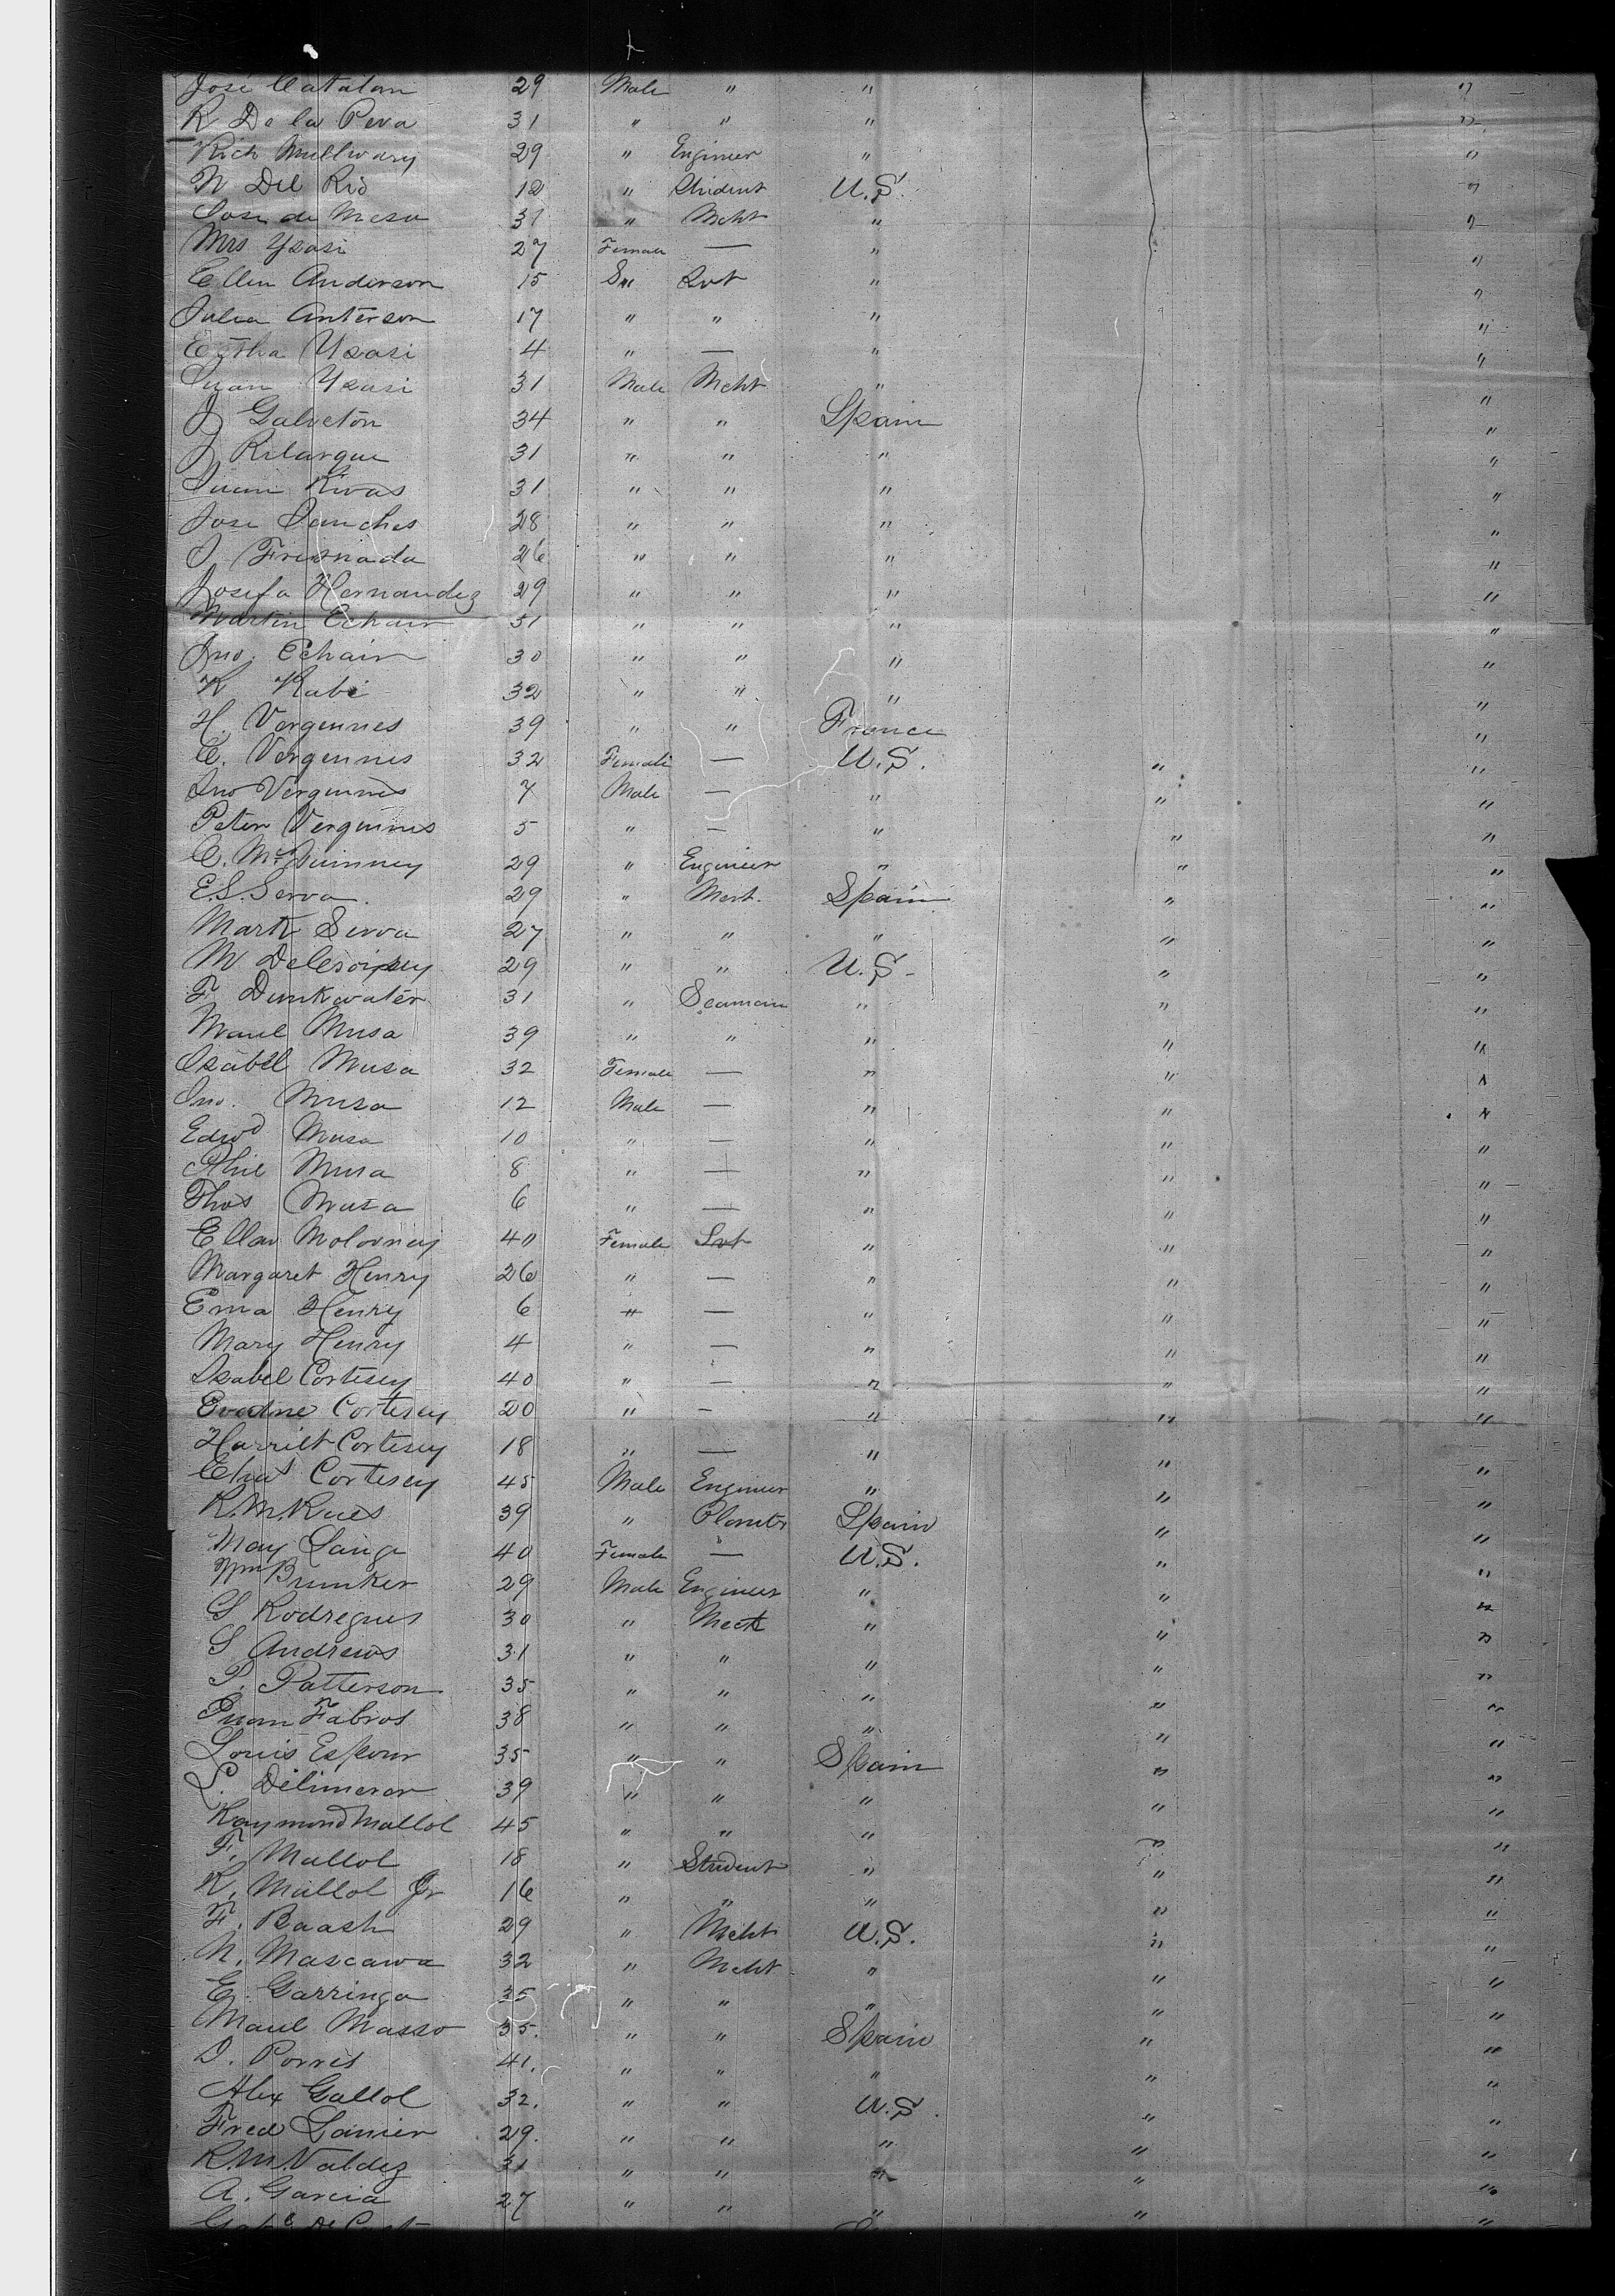 José Catalan 29 Male " " "
R De la Pera 31 " " " "
Rich Mullwary 29 " Engineer " "
N Del Rio 12 " Student U.S. "
Jose de Mesa 31 " Mcht " "
Mrs Ysasi 27 Female — " "
Ellen Anderson 15 Svt " "
Julia Anterson 17 " " " "
Ysasi 4 " — " "
Juan Ysasi 31 Male Mcht " "
J Galveton 34 " " Spain "
J Rilarque 31 " " " "
Juan Rivas 31 " " " "
Jose Sanches 28 " " " "
J. Fresnada 26 " " " "
Josefa Hernandez 29 " " " "
Martin Echair 31 " " " "
Jno. Echair 30 " " " "
K Kabe 32 " " " "
H. Vergennes 39 " " France "
C. Vergennes 32 Female — U.S. " "
Jno Vergennes 7 Male — " " "
Peter Vergennes 5 " — " " "
C. McQuinney 29 " Engineer " " "
E.S. Serva. 29 " Mert. Spain " "
Mark Serva 27 " " " " "
M 29 " " U.S. " "
F Dunkwater 31 " Seaman " " "
Manl Musa 39 " " " " "
Isabel Musa 32 Female — " " "
Jno. Musa 12 Male — " " "
Edwd Musa 10 " — " " "
Phil Musa 8 " — " " "
Thos Musa 6 " — " " "
Ellan Molovney 40 Female Svt " " "
Margaret Henry 26 " — " " "
Ema Henry 6 " — " " "
Mary Henry 4 " — " " "
Isabel Cortesey 40 " — " " "
Evadne Cortesey 20 " — " " "
Harriet Cortesey 18 " — " " "
Chas Cortesey 45 Male Engineer " " "
R.M. Rues 39 " Planter Spain " "
May Lange 40 Female — U.S. " "
Wm Brunker 29 Male Engineer " " "
G Rodregues 30 " Mect " " "
S Andrews 31 " " " " "
P. Patterson 35 " " " " "
Juan Fabros 38 " " " " "
Louis Espour 35 " " Spain " "
L. Delimerar 39 " " " " "
Raymond Mallol 45 " " " " "
F. Mallol 18 " Student " " "
R. Mallol Jr 16 " " " " "
F. Baash 29 " Mcht U.S. " "
N. Mascawa 32 " Mcht " " "
E. Garringa 35 " " " " "
Manl Masso 35. " " Spain " "
D. Porres 41. " " " " "
Alex Gallol 32. " " U.S. " "
Fred Lanier 29. " " " " "
R.M. Valdez 31 " " " " "
A. Garcia 27 " " " " "